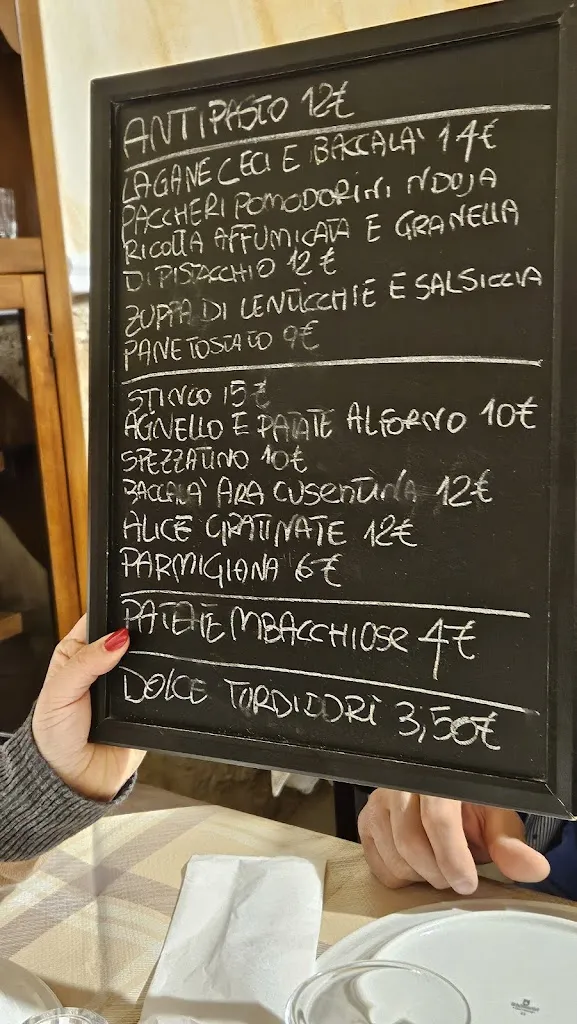 ANTIPASTO 12€
LAGANE CECI E BACCALA' 14€
PACCHERI POMODORINI NDUJA
RICOTTA AFFUMICATA E GRANELLA
DI PISTACCHIO 12€
ZUPPA DI LENTICCHIE E SALSICCIA
PANE TOSTATO 9€
STINCO 15€
AGNELLO E PATATE AL FORNO 10€
SPEZZATINO 10€
BACCALA' ARA CUSENTINA 12€
ALICE GRATINATE 12€
PARMIGIANA 6€
PATATE MBACCHIOSE 4€
DOLCE TURDIDDRI 3,50€